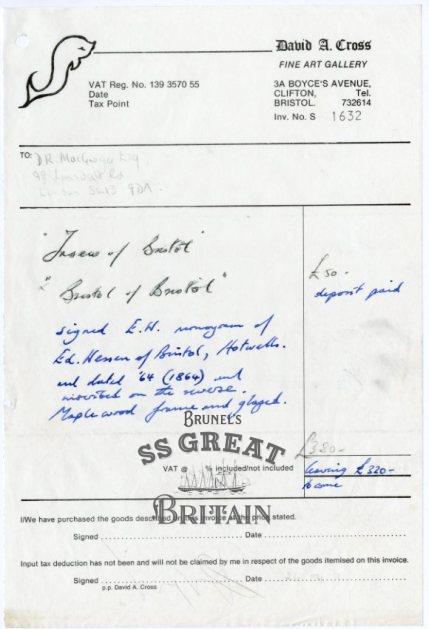 David A. Cross
FINE ART GALLERY
VAT Reg. No. 139 3570 55
Date
Tax Point
3A BOYCE'S AVENUE,
CLIFTON, Tel.
BRISTOL. 732614
Inv. No. S 1632
TO:
DR. MacGregor Esq
London SW13 9DA.
of Bristol"
"Bristol of Bristol"
£50-
deposit paid
signed E.H. monogram of
Ed. of Bristol, Hotwells.
and dated '64 (1864) and
inscribed on the reverse.
Maplewood frame and glazed.
BRUNEL'S
SS GREAT
BRITAIN
£380-
VAT @ % included/not included
leaving £320-
to come
I/We have purchased the goods described on this invoice at the price stated.
Signed Date
Input tax deduction has not been and will not be claimed by me in respect of the goods itemised on this invoice.
Signed Date
p.p. David A. Cross